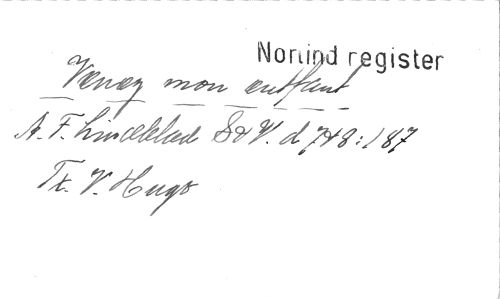 Norlind register
Venez mon enfant
A. F. Lindblad S o V. d 748:187
Tx. V. Hugo